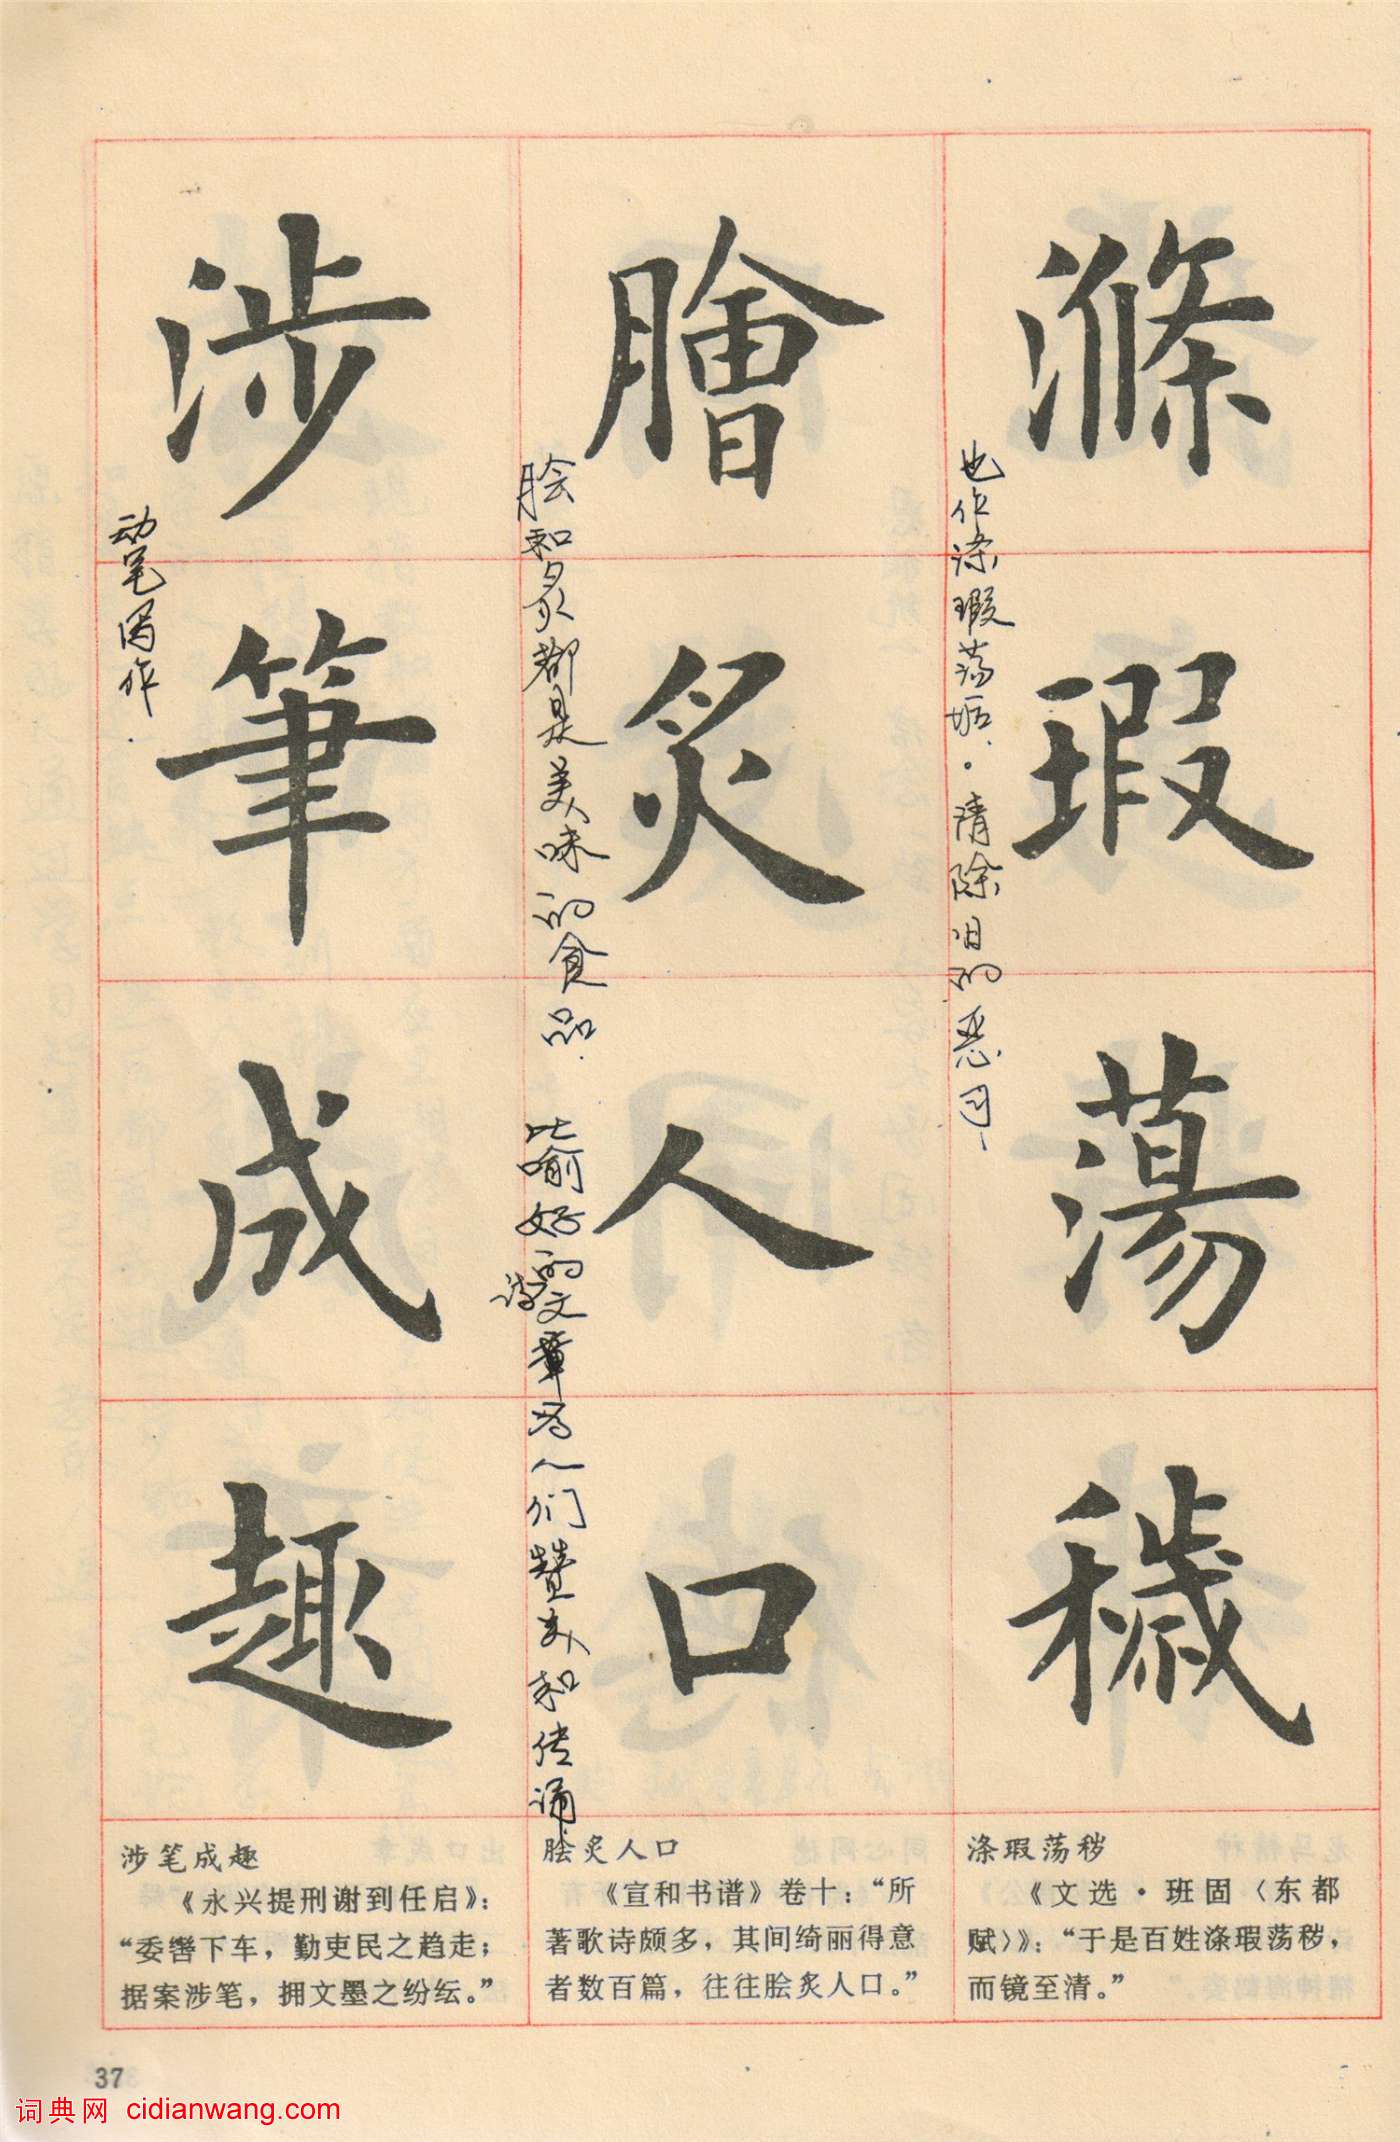 滌瑕蕩穢
也作涤瑕荡垢。清除旧的恶习
膾炙人口
脍和炙都是美味的食品.
比喻好的诗文章为人们赞美和传诵.
涉筆成趣
动笔写作.
涤瑕荡秽
《文选·班固〈东都
赋〉》：“于是百姓涤瑕荡秽，
而镜至清。”
脍炙人口
《宣和书谱》卷十：“所
著歌诗颇多，其间绮丽得意
者数百篇，往往脍炙人口。”
涉笔成趣
《永兴提刑谢到任启》：
“委辔下车，勤吏民之趋走；
据案涉笔，拥文墨之纷纭。”
37
词典网 cidianwang.com